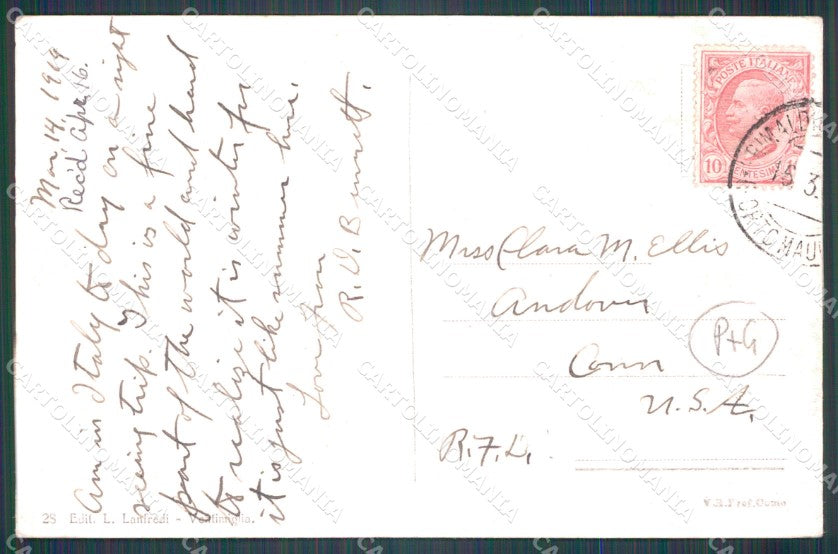 Mar. 14, 1919
Rec'd Apr. 16.
Am in Italy to day on a sight
seeing trip. This is a fine
part of the world and hard
to realize it is winter for
it is just like summer here.
Love from
R. V. Bennett.
POSTE ITALIANE
10
15.3.
PORTO MAU
Miss Clara M. Ellis
Andover
Conn
U.S.A.
P+G
R.F.D.
28 Edit. L. Lanfredi - Ventimiglia.
V.R.Prof.Como
CARTOLINOMANIA